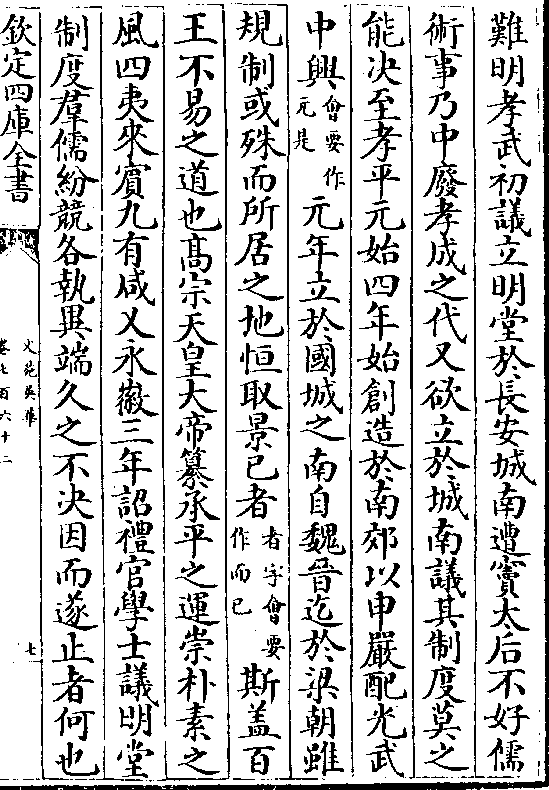 難明孝武初議立明堂於長安城南遭竇太后不好儒
術事乃中廢孝成之代又欲立於城南議其制度莫之
能决至孝平元始四年始創造於南郊以申嚴配光武
中興會要作元是元年立於國城之南自魏晉迄於梁朝雖
規制或殊而所居之地恒取景已者者字會要作而已斯盖百
王不易之道也髙宗天皇大帝纂承平之運崇朴素之
風四夷來賓九有咸乂永徽三年詔禮官學士議明堂
制度羣儒紛競各執異端久之不决因而遂止者何也
欽定四庫全書
文苑英華
卷七百六十二
七